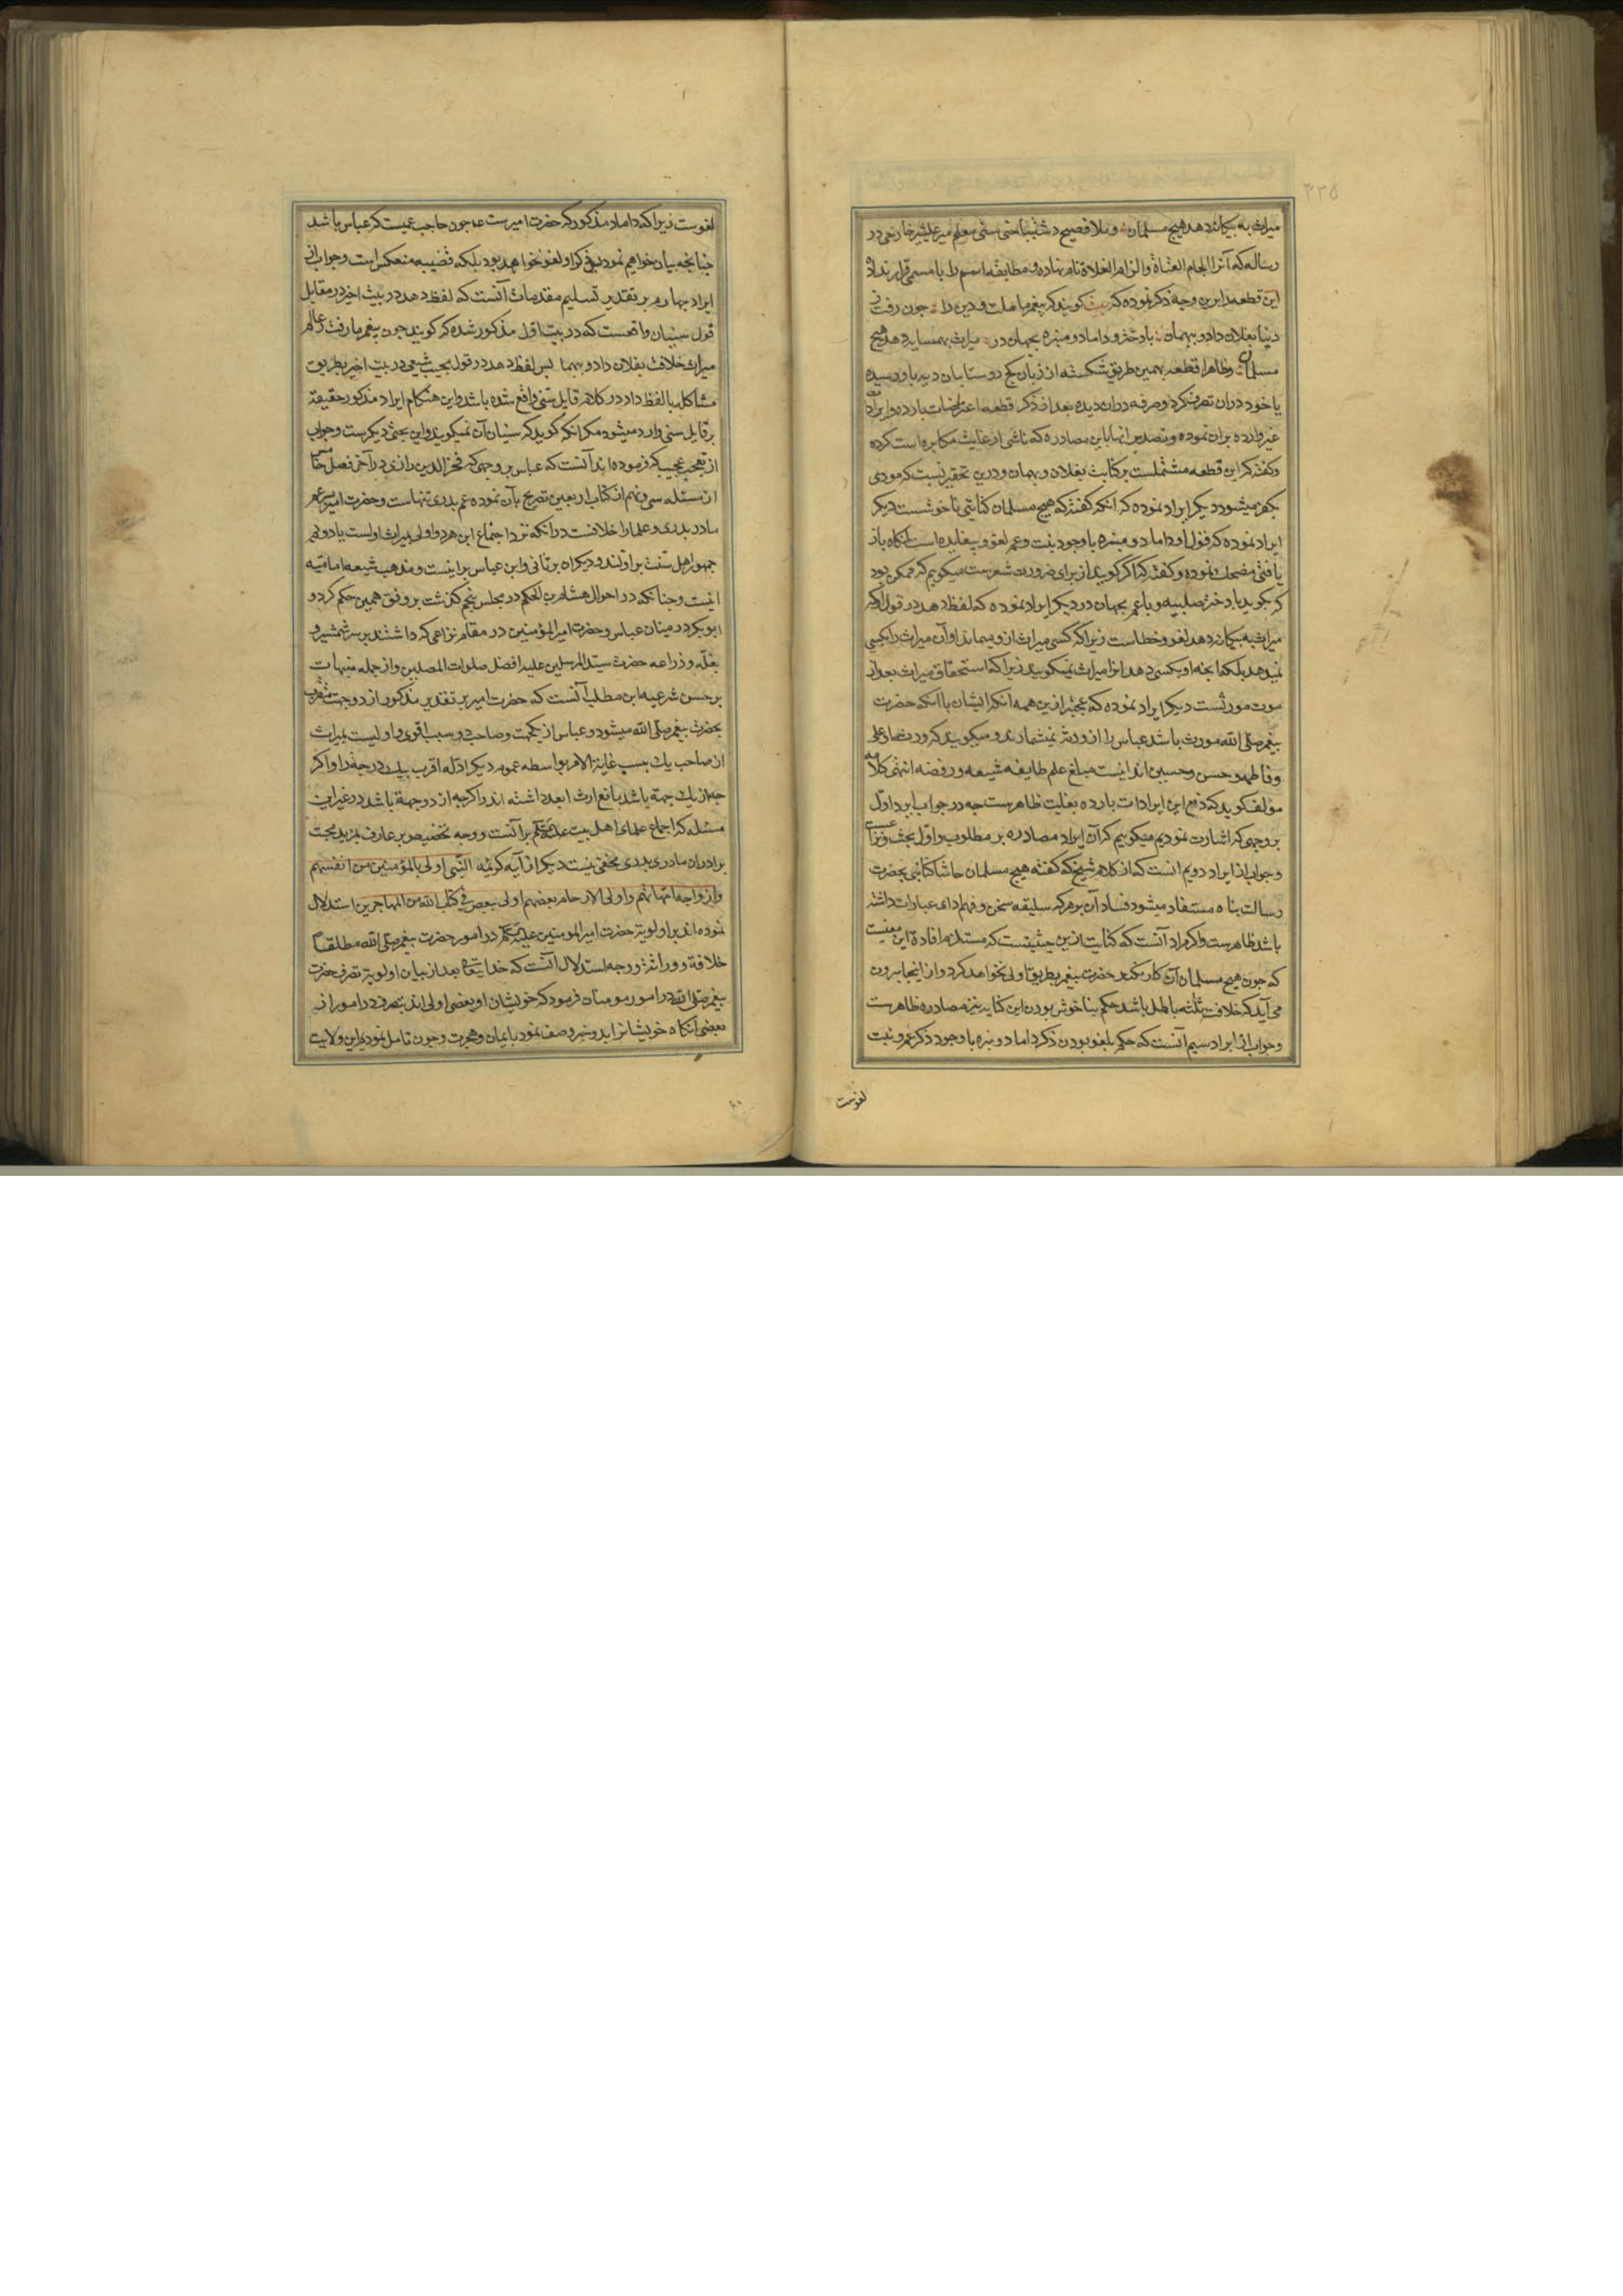 ۳۳۵
میراث به بیکانه دهد هیچ مسلمان و ملا فصیح دشتبیاضی سنی معلم میر علیشیر خارجی در
رساله که آنرا الجام العتاة والزام الغلاة نام نهاده و مطابقه اسم را با مسمی قرار نداده
این قطعه را برین وجه ذکر نموده که بیت کویند که پیغمبر ما ملت و دین را جون رفت ز
دنیا بفلان داد و بهمان با دختر و داماد و نبیره بجهان در میراث بهمسایه دهد هیچ
مسلمان و ظاهرا قطعه بهمین طریق شکسته از زبان کج روستایان دیه باو رسیده
یا خود در آن تصرف کرد و صرفه در آن دیده بعد از ذکر قطعه اعتراضات بارده و ایراد
غیر وارده بر آن نموده و تصدیر آنها باین مصادره که ناشی از غایت مکابره است کرده
و کفته که این قطعه مشتملست بر کنایت بفلان و بهمان و درین تحقیر نسبت که مودی
بکفر میشود دیکر ایراد نموده که آنکه کفته که هیچ مسلمان کنایتی ناخوشست دیکر
ایراد نموده که قول او داماد و نبیره با وجود بنت و عم لغو و بیفایده است آنکاه باز
یافتی مضحک نموده و کفته که اکر کویند از برای ضرورت شعرست میکویم که ممکن بود
که بکوید با دختر صلبیه و با عم بجهان در دیکر ایراد نموده که لفظ دهد در قول او که
میراث به بیکانه دهد لغو و خطاست زیرا که کسی میراث ازو میماند او آن میراث را بکسی
نمیدهد بلکه آنجه او بکسی دهد آنرا میراث نمیکویند زیرا که استحقاق میراث بعد از
موت مورثست دیکر ایراد نموده که عجبتر ازین همه آنکه ایشان با آنکه حضرت
پیغمبر صلی الله مورث باشد عباس را از ورثه نمیشمارند و میکویند که ورثه او علی
و فاطمه و حسن و حسین اند اینست مبلغ علم طایفه شیعه و رفضه انتهی کلامه
مولف کوید که دفع این ایرادات بارده بغایت ظاهرست جه در جواب ایراد اول
بر وجهی که اشارت نمودیم میکوییم که آن ایراد مصادره بر مطلوب و اول بحث و نزاعست
و جواب از ایراد دویم آنست که از کلام شیخ که کفته هیچ مسلمان حاشا کنایتی بحضرت
رسالت پناه مستفاد میشود فساد آن بر هر که سلیقه سخن و فهم ادای عبارات داشته
باشد ظاهرست و اکر مراد آنست که کنایت ازین حیثیتست که مستلزم افاده این معنیست
که جون هیچ مسلمان آن کار نکند حضرت پیغمبر بطریق اولی نخواهد کرد و از اینجا بیرون
می آید که خلافت ثلثه باطل باشد حکم بناخوش بودن این کنایه نیز مصادره ظاهرست
و جواب از ایراد سیم آنست که حکم بلغو بودن ذکر داماد و نبیره با وجود ذکر عم و بنت
لغوست
لغوست زیرا که داماد مذکور که حضرت امیرست ع جون حاجب عمیست که عباس باشد
جنانجه بیان خواهیم نمود پس ذکر او لغو نخواهد بود بلکه قضییه منعکس است و جواب از
ایراد جهارم بر تقدیر تسلیم مقدمات آنست که لفظ دهد در بیت اخیر در مقابل
قول سنیان واقعست که در بیت اول مذکور شده که کویند جون پیغمبر ما رفت ز عالم
میراث خلافت بفلان داد و بهمان پس لفظ دهد در قول مجیب شیعی در بیت اخیر بطریق
مشاکله با لفظ داد در کلام قایل سنی واقع شده باشد و این هنکام ایراد مذکور حقیقة
بر قایل سنی وارد میشود مکر آنکه کوید که سنیان آن نمیکویند و این بحثی دیکرست و جواب
از تعجب عجیب که فرموده اند آنست که عباس بر وجهی که فخر الدین رازی در آخر فصل خامس
از مسئله سی و نهم از کتاب اربعین تصریح بآن نموده عم پدری تنهاست و حضرت امیر پسر عم
مادر پدری و علما را خلافست در آنکه نزد اجتماع این هر دو اولی بمیراث اولست یا دویم
جمهور اهل سنت بر اولند و دیکران بر ثانی و ابن عباس بر اینست و مذهب شیعه امامیه
اینست و جنانکه در احوال هشام بن الحکم در مجلس پنجم کذشت بر وفق همین حکم کرد و
ابو بکر در میان عباس و حضرت امیر المؤمنین در مقام نزاعی که داشتند بر سر شمشیر و
بغله و ذراعه حضرت سید المرسلین علیه افضل صلوات المصلین و از جمله منبهات
بر حسن شرعیه این مطلب آنست که حضرت امیر بر تقدیر مذکور از دو جهت متقرب
بحضرت پیغمبر صلی الله میشود و عباس از یکجهت و صاحب دو سبب اقوی و اولیست بمیراث
از صاحب یک سبب غایة الامر بواسطه عموم دیکر ادله اقرب بیک درجه را و اکر
جه از یک جهة باشد مانع ارث ابعد داشته اند و اکرجه از دو جهة باشد در غیر این
مسئله که اجماع علمای اهل بیت علیهم السلام بر آنست و وجه تخصیص بر عارف بمزید محبت
برادران مادری پدری مخفی نیست دیکر از آیه کریمه النبی اولی بالمؤمنین من انفسهم
وازواجه امهاتهم واولی الارحام بعضهم اولی ببعض فی کتاب الله من المهاجرین استدلال
نموده اند بر اولویة حضرت امیر المومنین علیه السلام در امور حضرت پیغمبر صلی الله مطلقا
خلافة و وراثة و وجه استدلال آنست که خدایتعالی بعد از بیان اولویة تصرف حضرت
پیغمبر صلی الله در امور مومنان فرمود که خویشان او بعضی اولی اند بتصرف در امور از
بعضی آنکاه خویشانرا وصف نمود بایمان و هجرت و جون تامل نمودیم این ولایت